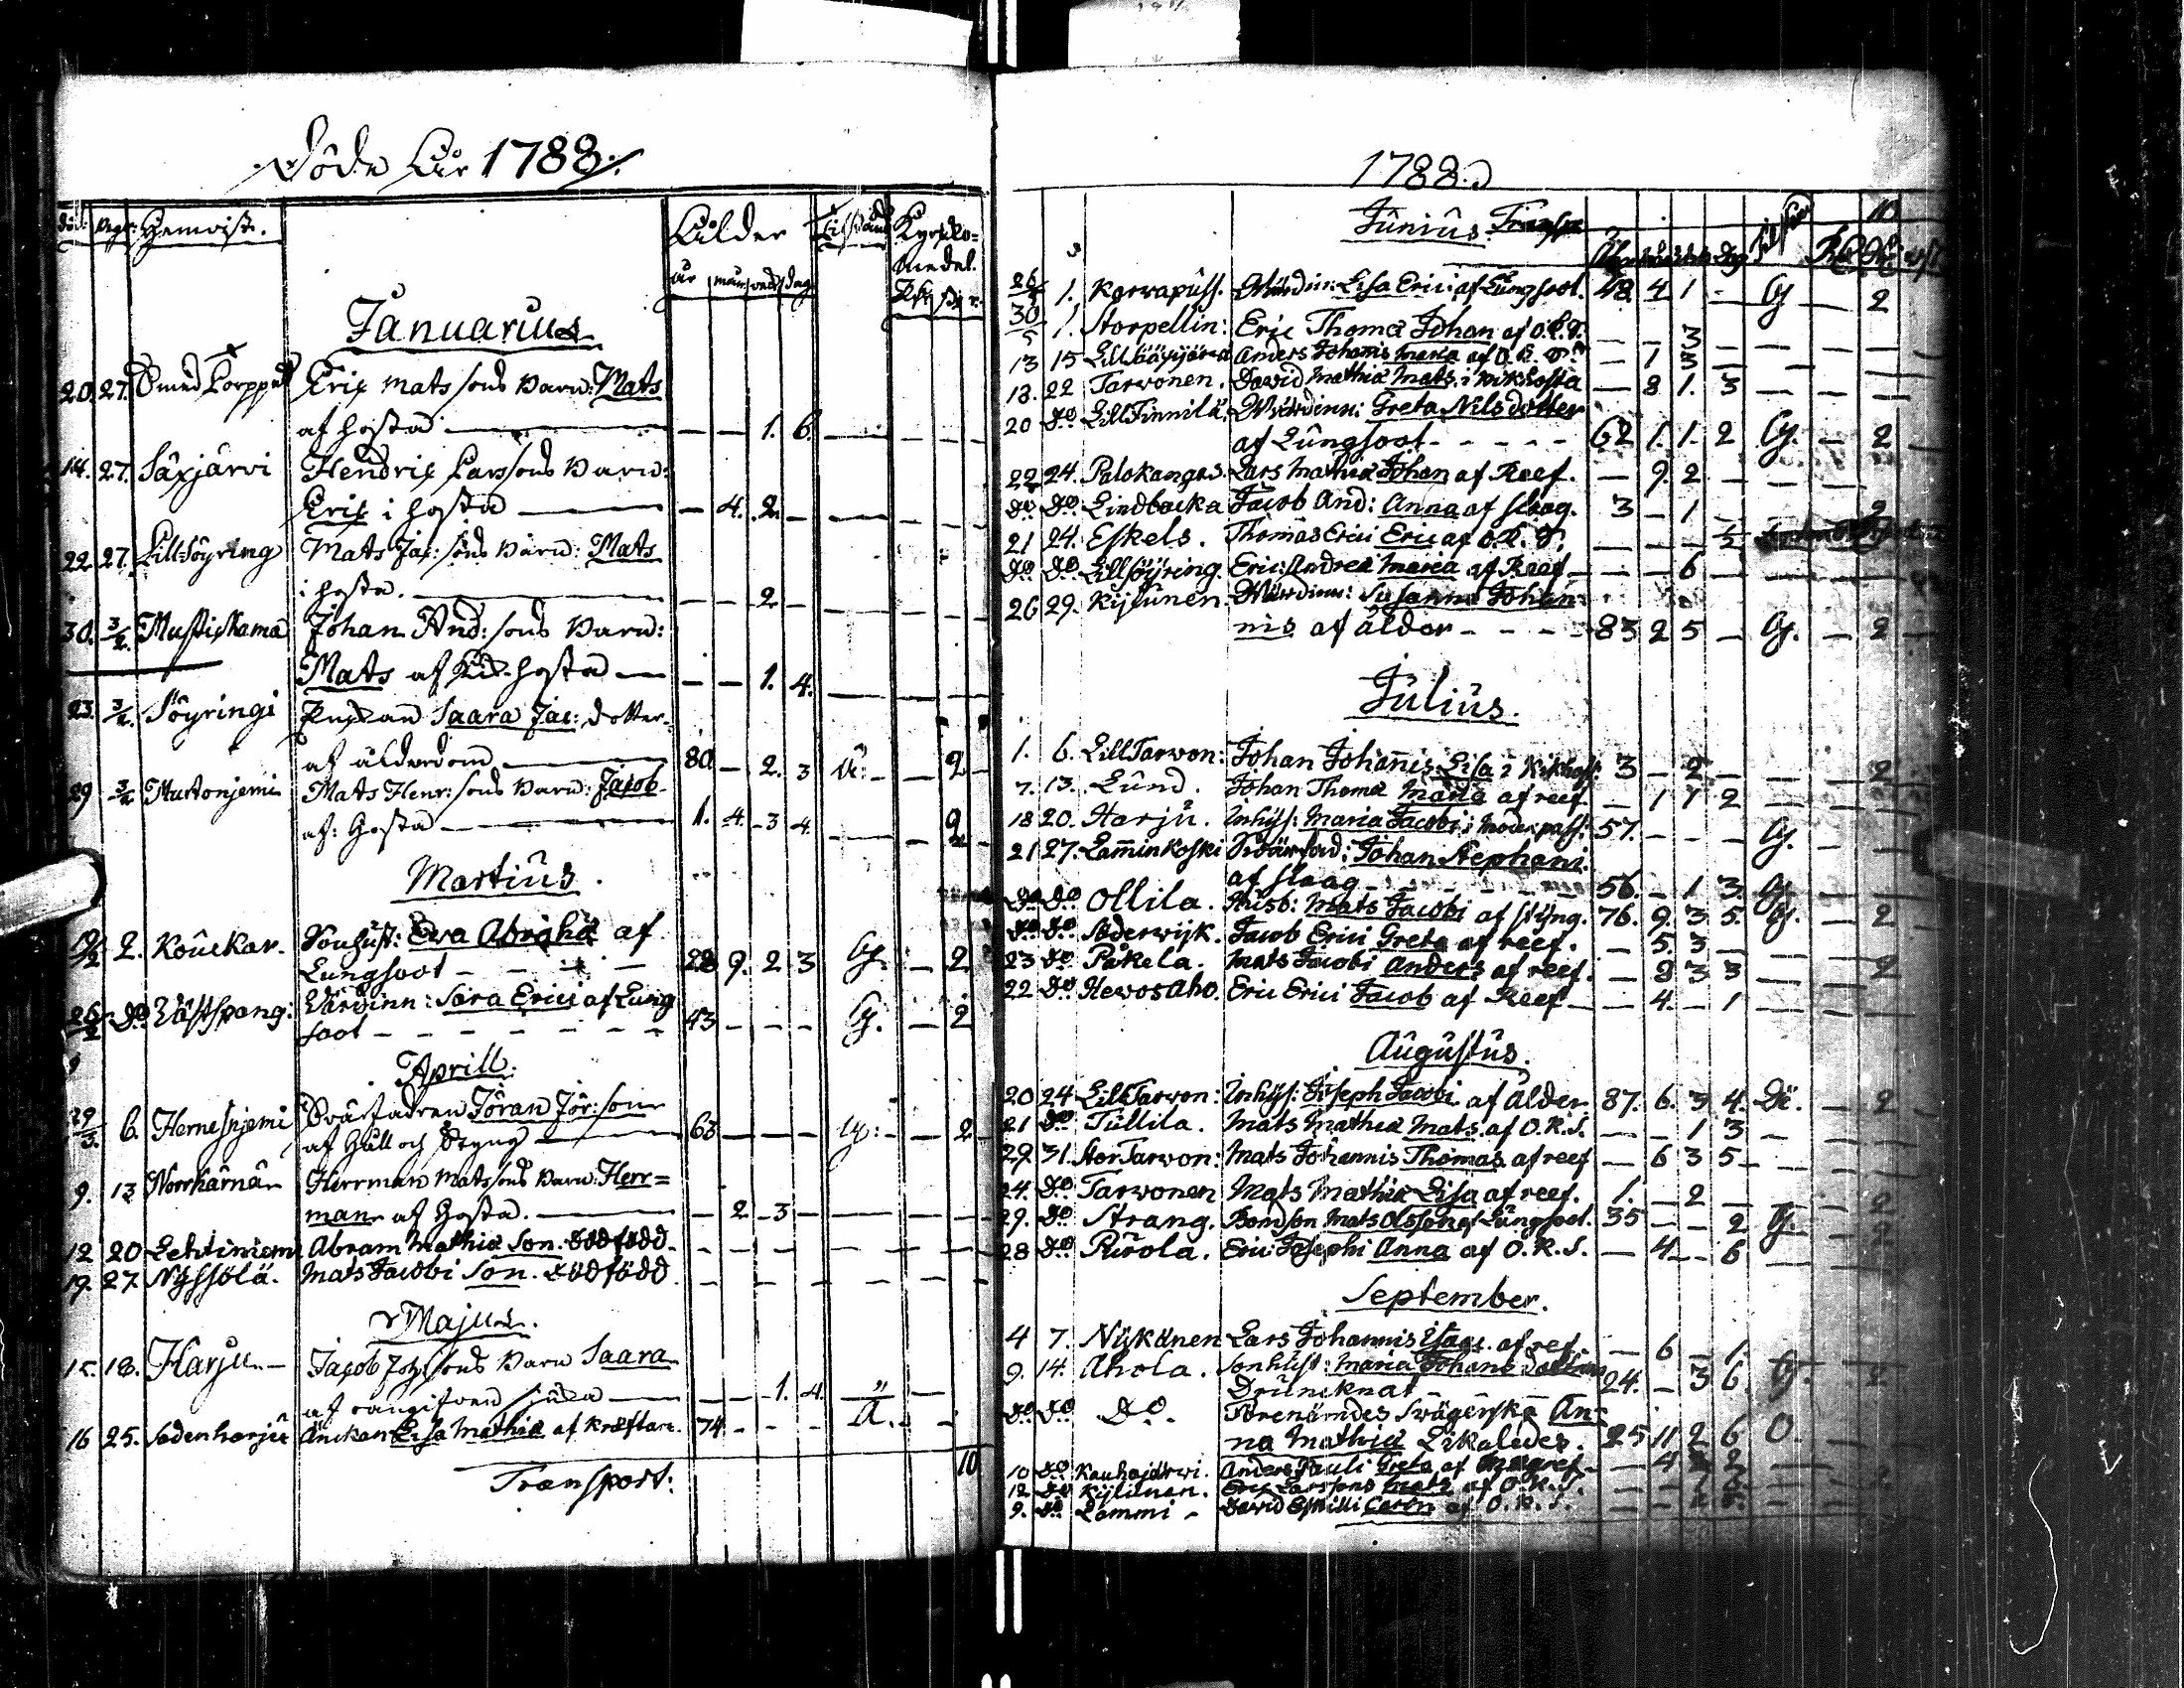 Döde Åhr 1788.
död: begr: Hemvist.
Ålder
år mån: veck: dag
Kyrcko-
medel.
Januarius
20. 27. Erix Matssons barn: Mats
af hosta — — — 1. 6. — — —
14. 27. Saxjärvi Hendrix Larssons barn:
Erix i hosta — — 4. 2. — — — —
22. 27. Lillsöyring Mats Jac:sons barn: Mats
i hosta. — — — 2. — — — —
30. 3/2. Mustiskama Johan And:sons barn:
Mats af Kik-hosta — — — 1. 4. — — —
23. 3/2. Söyringi Enckan Saara Jac: dotter.
af ålderdom — 80 — 2. 3 — 2 —
29 3/2 Mats Henr:sons barn: Jacob
af: Hosta — 1. 4. 3 4. — — 2
Martius.
2. Kouckar. Sonhust: Ewa Abrahä af
Lungsoot - - - 28 9. 2 3 G. — 2
26/2 Do Wästspang: Wärdinn: Sara Erici af Lung
soot - - - 43 - - - G. — 2
Aprill.
29/3. 6. Hernessjemi Svärfadren Jöran Jör:son
af Håll och Styng — 63 — — — G: — 2
9. 13 Norrkärnä Herrman Matssons barn: Herr=
man af Hosta. — — 2 3 — — — —
12 20 Lehtiniem Abram Mathiæ Son. dödfödd. - - - -
19. 27. Nyssölä. Mats Jacobi Son. dödfödd - - - -
Majus.
15. 18. Harju — Jacob Joh:sons barn Saara
af oangifven siuka — — — 1. 4. " —
16 25. Sadenharju Änckan Lisa Mathiæ af kräftan. 74. - - - A. -
Transport: 10
1788.
Junius. Transp 10
26/5 1. Korvapuss. Wärdin: Lisa Erici af Lungsoot. 48. 4 1 - G — 2
30/5 1. Storpellin: Eric Thomæ Johan af O.K.S. — — 3 — — —
13 15 Anders Johannis Maria af O.K.S. — 1 3 — — —
18. 22 Tarvonen. David Mathiæ Mats i Kikhosta — 8 1. 3 — — —
20 Do Lill Finnilä. Wärdinn: Greta Nilsdotter
af Lungsoot - - - - - 62 1. 1. 2 G. — 2 —
22 24. Palokangas. Lars Mathiæ Johan af Reef. — 9. 2 — — —
Do Do Lindbacka Jacob And: Anna af slaag. 3 — 1 — — 2
21 24. Eskels. Thomas Erici Eric af O.K.S. — — — 1/2
Do Do Lillsöyring. Eric Andreæ Maria af Reef — — — 6 — — —
26 29. Kyjunen. Wärdinn: Susanna Johan-
nis af ålder - - - - 83 2 5 — G. — 2 —
Julius.
1. 6. Lill Tarvon: Johan Johannis Lisa i Kikhost: 3 — 2 — — — 2
7. 13. Lund. Johan Thomæ Maria af reef — 1 1 2 — — —
18 20. Harju. Inhys: Maria Jacobi i Moderpass: 57. - - - G. — —
21 27. Lamminkoski Swärfad: Johan Stephani
af slaag - - - 56. — 1 3 G. —
Do Do Ollila. Husb: Mats Jacobi af styng. 76. 9. 3. 5. G. — 2
Do Do Söderwijk. Jacob Erici Greta af reef. — 5 3 — — —
23 Do Påkela. Mats Jacobi Anders af reef. — 8 3 3 — — 2
22 Do Hewosaho. Eric Erici Jacob af Reef — — 4. — 1 — — —
Augustus.
20 24 Lill Tarvon: Inhys: Joseph Jacobi af Ålder 87. 6. 3 4. — 2
21 Do Tullila. Mats Mathiæ Mats af O.K.S. — — 1 3 — — —
29 31. Stor Tarvon: Mats Johannis Thomas af reef — 6 3 5 — — —
24. Do Tarvonen Mats Mathiæ Lisa af reef. 1. — 2 — — — 2
29. Do Strang. Bondson Mats Olsson af Lungsot. 35 — — 2 G. — 2
28 Do Purola. Eric Josephi Anna af O.K.S. — 4 — 6 — — —
September.
4 7. Nykänen Lars Johannis Isaac af ref. — 6 — 1. — —
9. 14. Ahola. Sonhust: Maria Johans dotter
Druncknat - - - 24. — 3 6. G. — 2
Do Do Do. Förenämdes Swägerska An-
na Mathiæ Likaledes. 25 11 2 6 O. — —
10 Do Kauhajärwi. Anders Pauli Greta af — 4
12 Do Kylänen. Erix Larssons Mats af O.K.S.
9. Do Lammi - David Eskilli Carin af O.K.S.